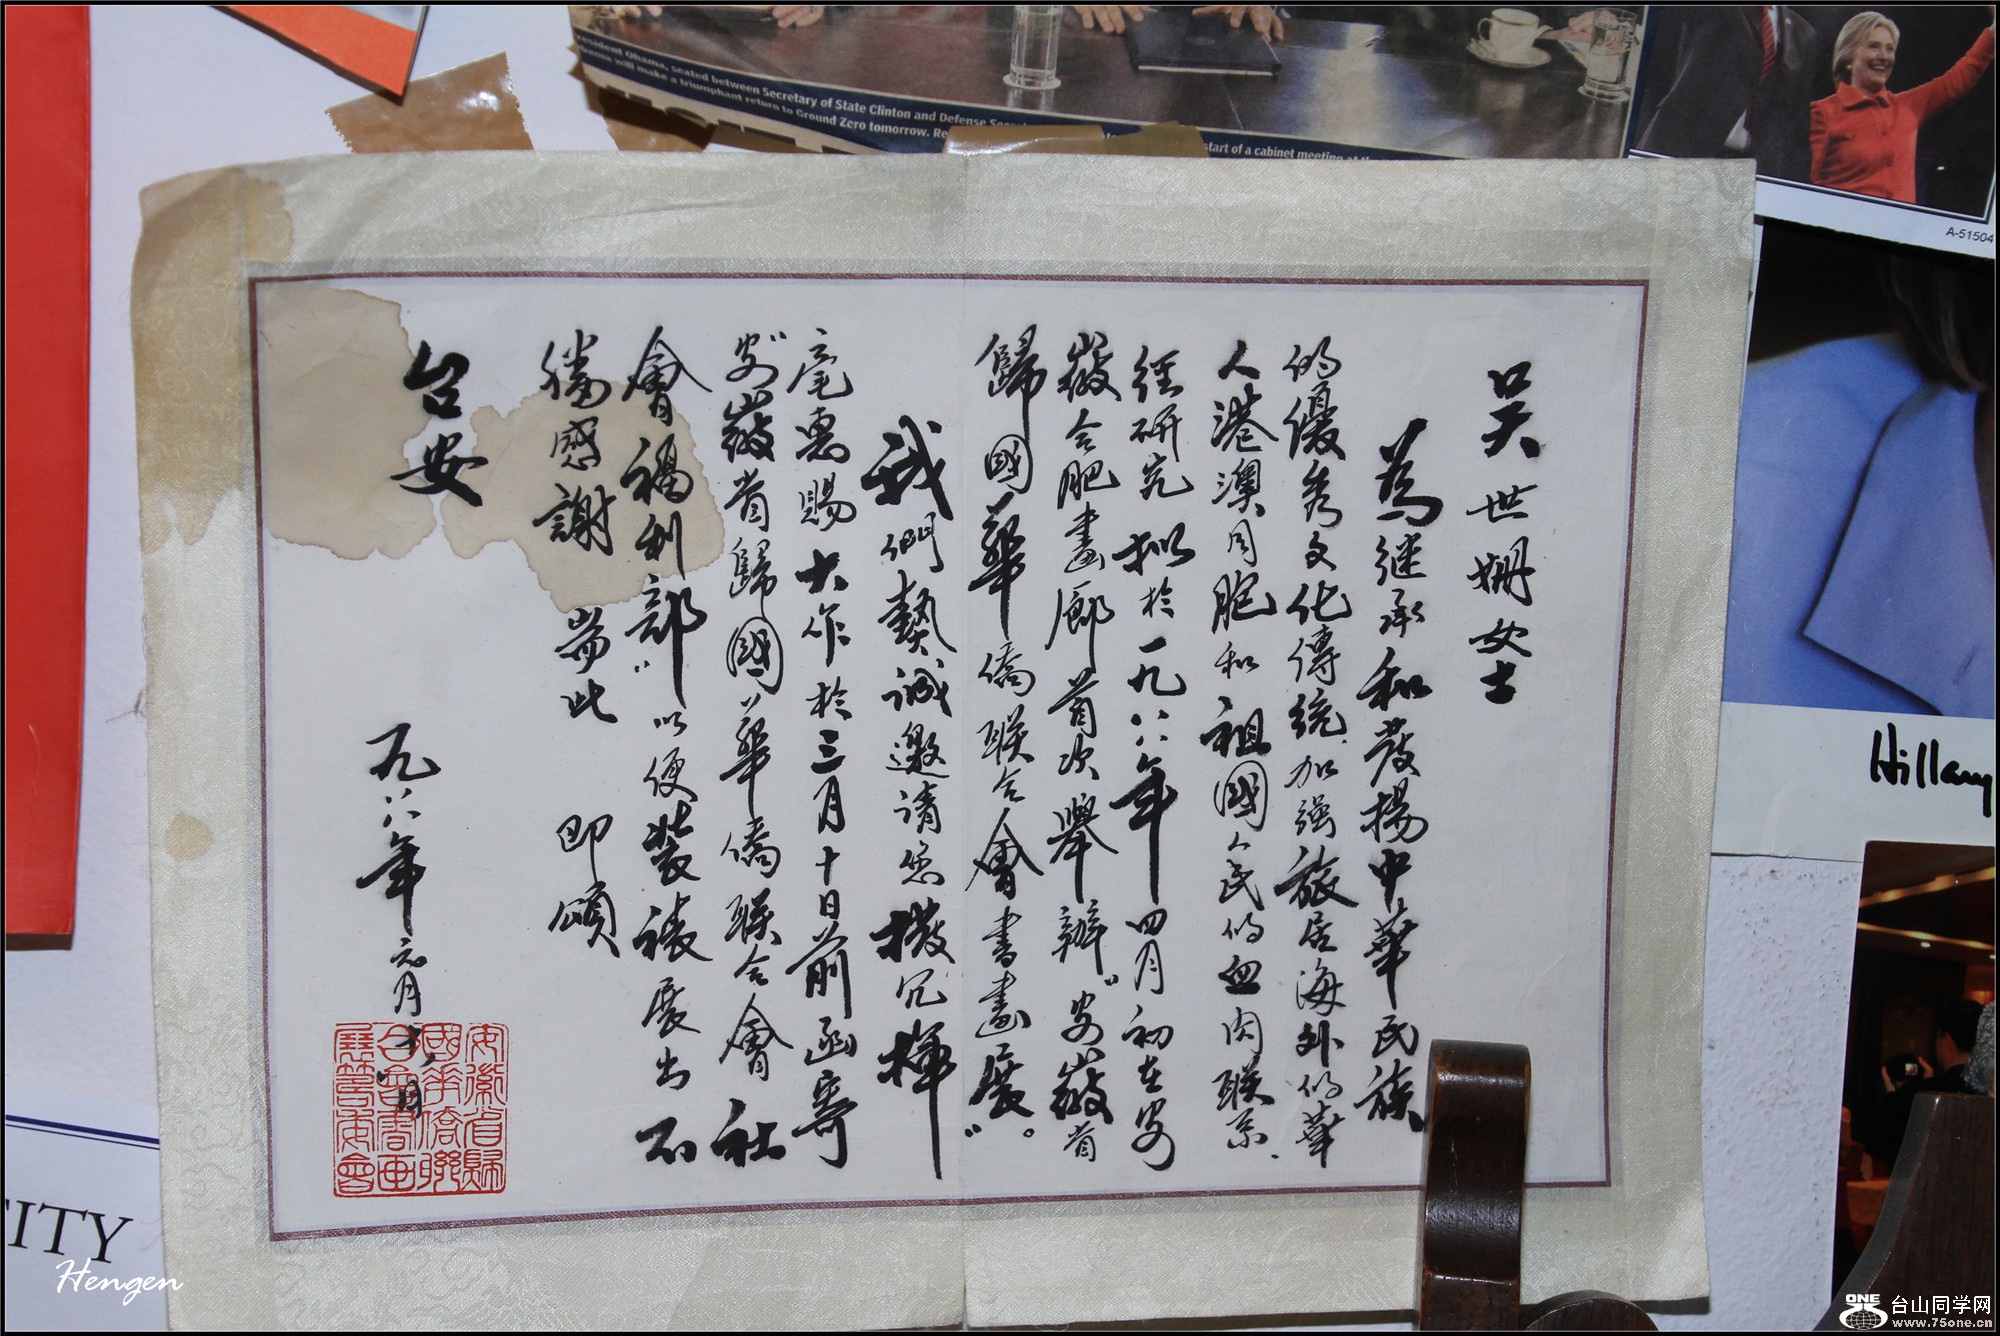 resident Obama, seated between Secretary of State Clinton and Defense
bama will make a triumphant return to Ground Zero tomorrow.
start of a cabinet meeting at
A-51504
Hillary
吴世姗女士
為继承和發揚中華民族
的優秀文化傳統、加强旅居海外的華
人港澳同胞和祖國人民的血肉联系、
经研究拟於一九八八年四月初在安
徽合肥畫廊首次舉辦"安徽省
歸國華僑联合會書畫展"。
我們熱诚邀请您撥冗揮
毫惠賜大作於三月十日前函寄
安徽省歸國華僑联合會社
會福利部"以便装裱展出不
勝感謝 耑此 即頌
台安
一九八八年元月十八日
安徽省歸
國華僑聯
合會書畫
展籌委會
CITY
Hengen
ONE
台山同学网
www.75one.cn